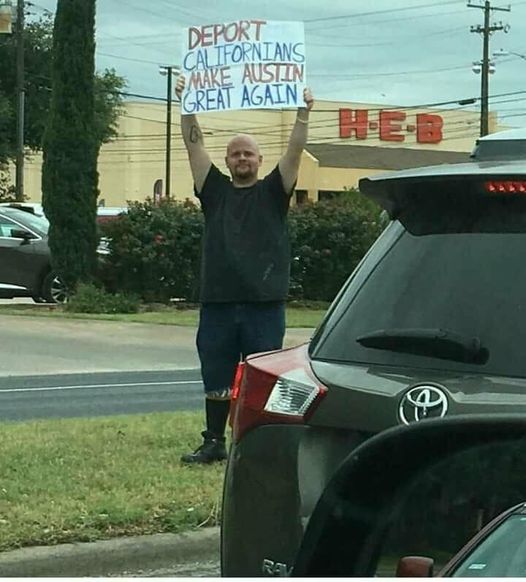 DEPORT
CALIFORNIANS
MAKE AUSTIN
GREAT AGAIN
H-E-B
RAV